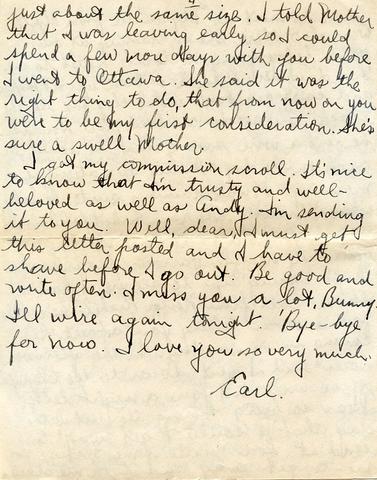 4
just about the same size. I told Mother
that I was leaving early so I could
spend a few more days with you before
I went to Ottawa. She said it was the
right thing to do, that from now on you
were to be my first consideration. She's
sure a swell Mother.
I got my commission scroll. It's nice
to know that I'm trusty and well-
beloved as well as Andy. I'm sending
it to you. Well, dear, I must get
this letter posted and I have to
shave before I go out. Be good and
write often. I miss you a lot, Bunny.
I'll wire again tonight. 'Bye-bye
for now. I love you so very much.
Earl.